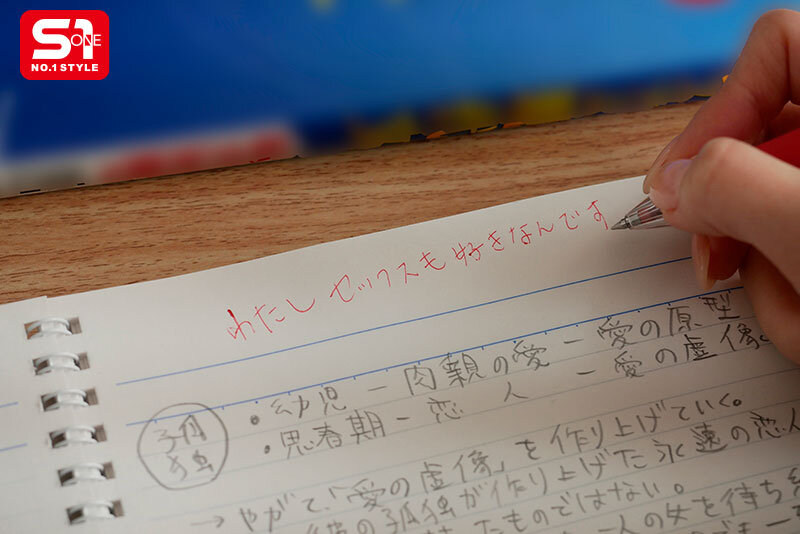 S1
ONE
NO.1 STYLE
わたし セックスも 好きなんです
・幼児 ー 肉親の愛 ー 愛の原型
孤独
・思春期 ー 恋人 ー 愛の虚像。
→ やがて「愛の虚像」を作り上げていく。
の孤独が作り上げた永遠の恋人
たものではない。
一人の女を待ち